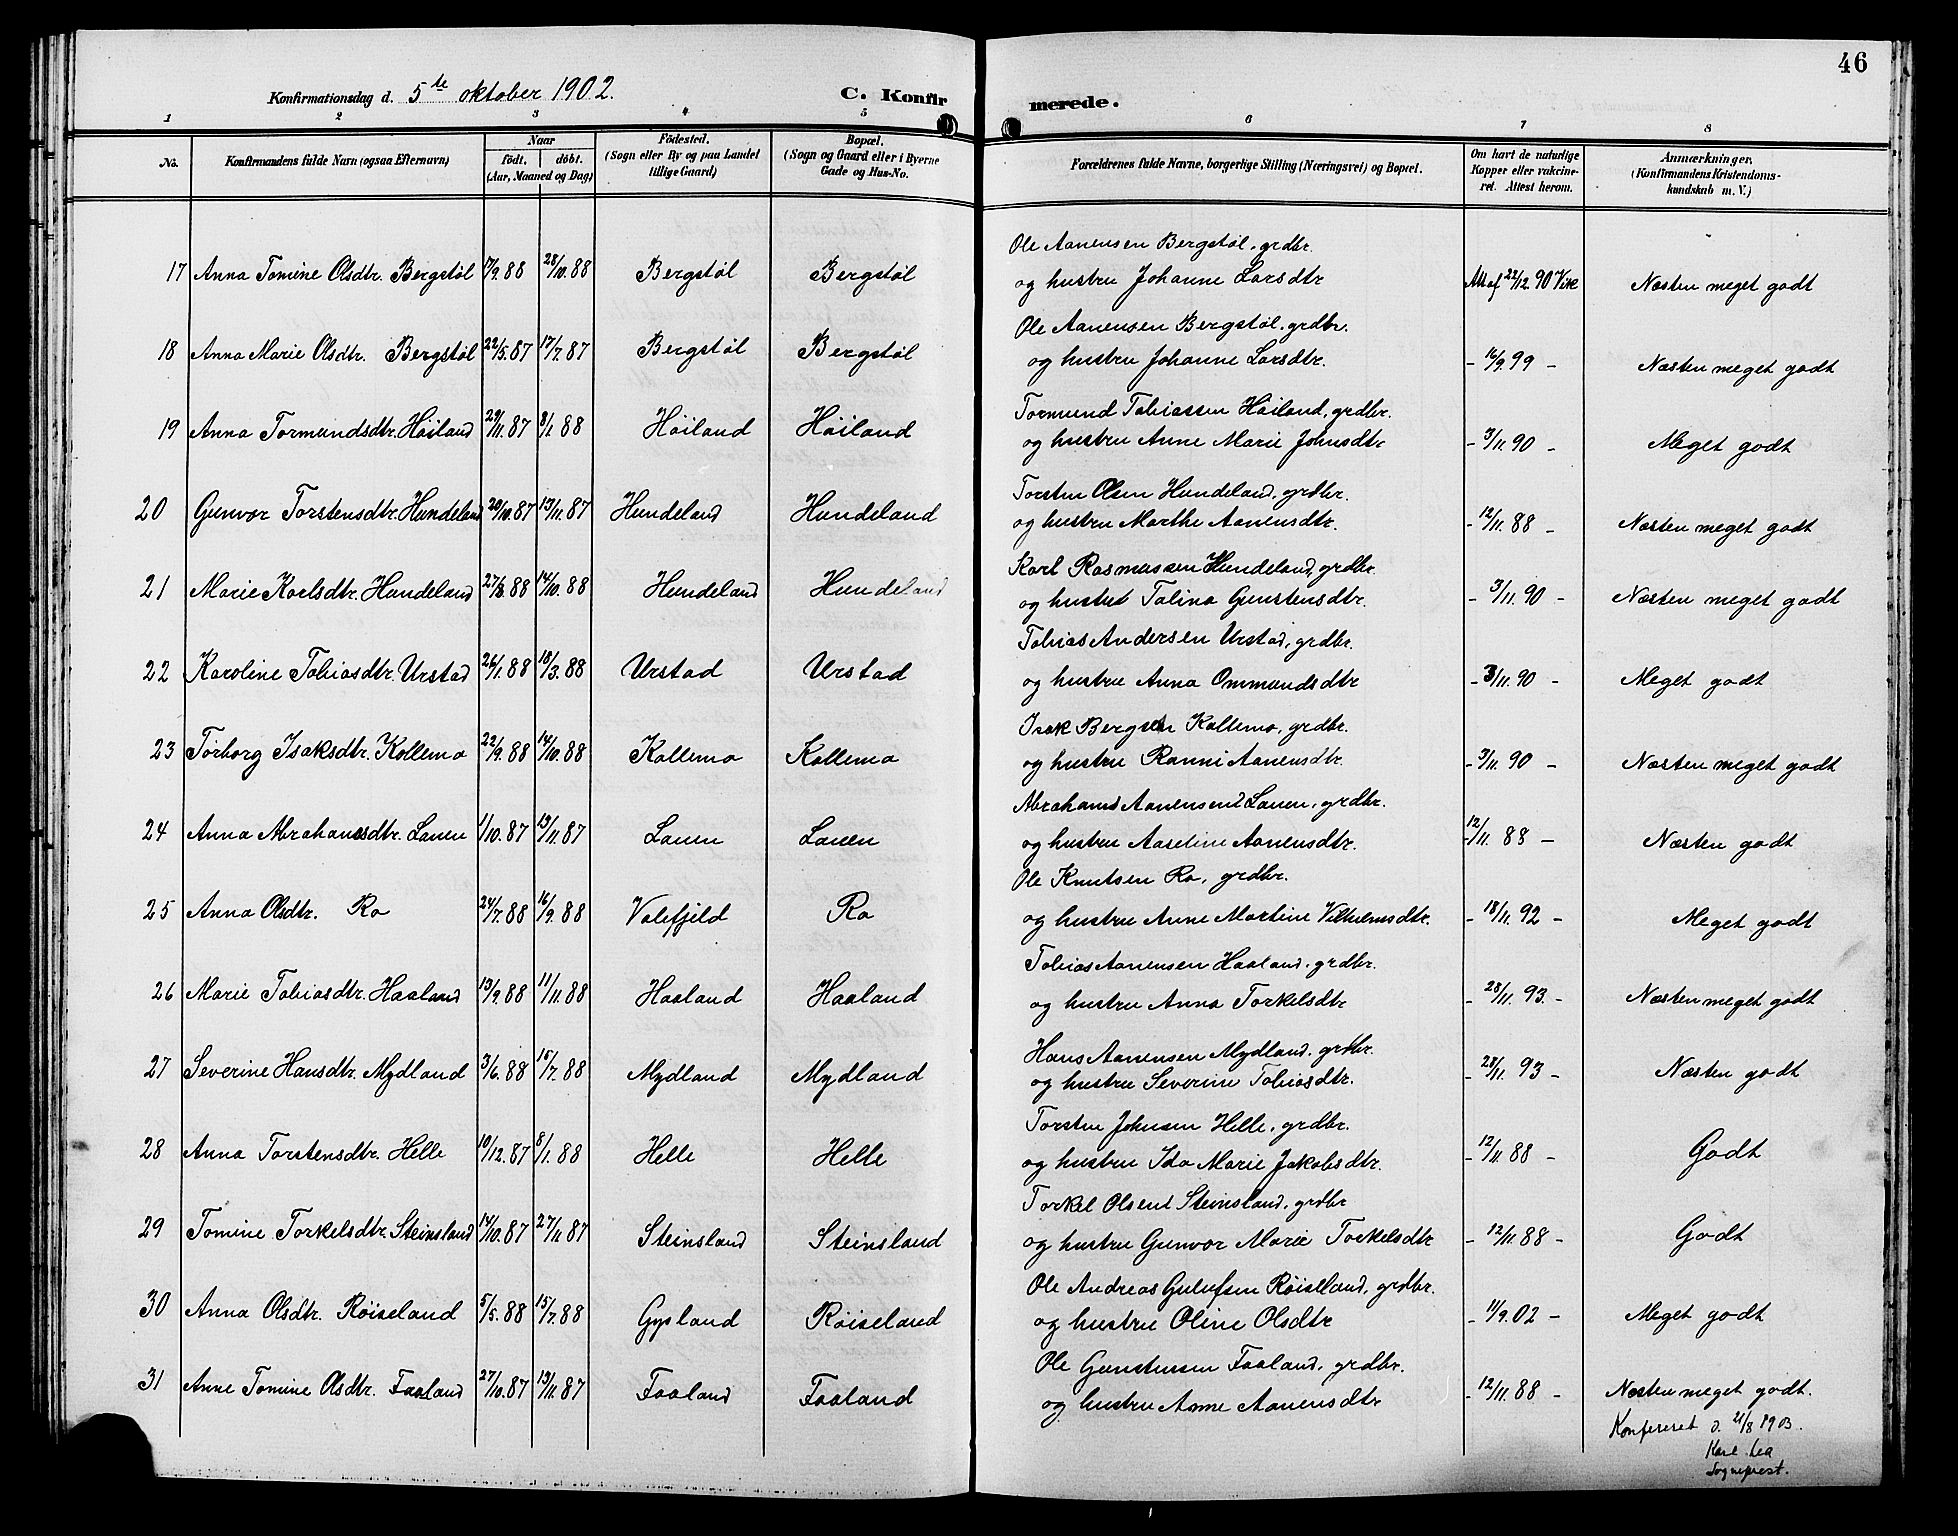 46
Konfirmationsdag d. 5te oktober 1902.
C. Konfirmerede.
1 2 3 4 5 6 7 8
No. Konfirmandens fulde Navn (ogsaa Efternavn) Naar født. døbt. (Aar, Maaned og Dag) Fødested. (Sogn eller By og paa Landet tillige Gaard) Bopæl. (Sogn og Gaard eller i Byerne Gade og Hus-No. Forældrenes fulde Navne, borgerlige Stilling (Næringsvei) og Bopæl. Om havt de naturlige Kopper eller vakcineret. Attest herom. Anmærkninger. (Konfirmandens Kristendomskundskab m. V.)
Ole Aanensen Bergstøl, grdbr.
17 Anna Tomine Olsdtr. Bergstøl 17/9.88 28/10.88 Bergstøl Bergstøl og hustru Johanne Larsdtr Att af 22/12.90 Næsten meget godt
Ole Aanensen Bergstøl, grdbr.
18 Anna Marie Olsdtr. Bergstøl 22/5.87 17/7.87 Bergstøl Bergstøl og hustru Johanne Larsdtr. - 16/9.99 - Næsten meget godt
Tormund Tobiassen Høiland, grdbr.
19 Anna Tormundsdtr. Høiland 29/11.87 8/1.88 Høiland Høiland og hustru Anne Marie Johnsdtr - 3/11.90 - Meget godt
Torsten Olsen Hundeland, grdbr.
20 Gunvor Torstensdtr. Hundeland 20/10.87 13/11.87 Hundeland Hundeland og hustru Marthe Aanensdtr. - 12/11.88 - Næsten meget godt
Karl Rasmussen Hundeland, grdbr
21 Marie Karlsdtr. Hundeland 27/8.88 14/10.88 Hundeland Hundeland og hustru Talina Gunstensdtr. - 3/11.90 - Næsten meget godt
Tobias Andersen Urstad, grdbr.
22 Karoline Tobiasdtr. Urstad 26/1.88 18/3.88 Urstad Urstad og hustru Anna Ommundsdtr - 3/11.90 - Meget godt
Isak Bergsen Kallemo, grdbr.
23 Torborg Isaksdtr. Kollemo 22/9.88 14/10.88 Kallemo Kollemo og hustru Ranni Aanensdtr. - 3/11.90 - Næsten meget godt
Abraham Aanensen Lauen, grdbr.
24 Anna Abrahamsdtr. Lauen 1/10.87 13/11.87 Lauen Lauen og hustru Aaseline Aanensdtr. - 12/11.88 - Næsten godt
Ole Knutsen Ra, grdbr.
25 Anna Olsdtr. Ra 24/7.88 16/9.88 Valefjeld Ra og hustru Anne Martine Vilhelmsdtr. - 18/11.92 - Meget godt
Tobias Aanensen Haaland, grdbr.
26 Marie Tobiasdtr. Haaland 13/9.88 11/11.88 Haaland Haaland og hustru Anna Torkelsdtr - 28/11.93. - Næsten meget godt
Hans Aanensen Mydland, grdbr.
27 Severine Hansdtr. Mydland 3/6.88 15/7.88 Mydland Mydland og hustru Severine Tobiasdtr. - 28/11.93 - Næsten godt
Torsten Johnsen Helle, grdbr.
28 Anna Torstensdtr. Helle 10/12.87 8/1.88 Helle Helle og hustru Ida Marie Jakobsdtr. - 12/11.88 - Godt
Torkel Olsen Steinsland, grdbr
29 Tomine Torkelsdtr. Steinsland 14/10.87 27/11.87 Steinsland Steinsland og hustru Gunvor Marie Torkelsdtr - 12/11.88 - Godt
Ole Andreas Gulufsen Røiseland, grdbr.
30 Anna Olsdtr. Røiseland 5/5.88 15/7.88 Gysland Røiseland og hustru Oline Olsdtr - 11/9.02 - Meget godt
Ole Gunstensen Faaland, grdbr.
31 Anne Tomine Olsdtr. Faaland 27/10.87 13/11.87 Faaland Faaland og hustru Anne Aanensdtr - 12/11.88 - Næsten meget godt.
Konfereret d. 21/8 1903.
Karl Lea
Sogneprest.